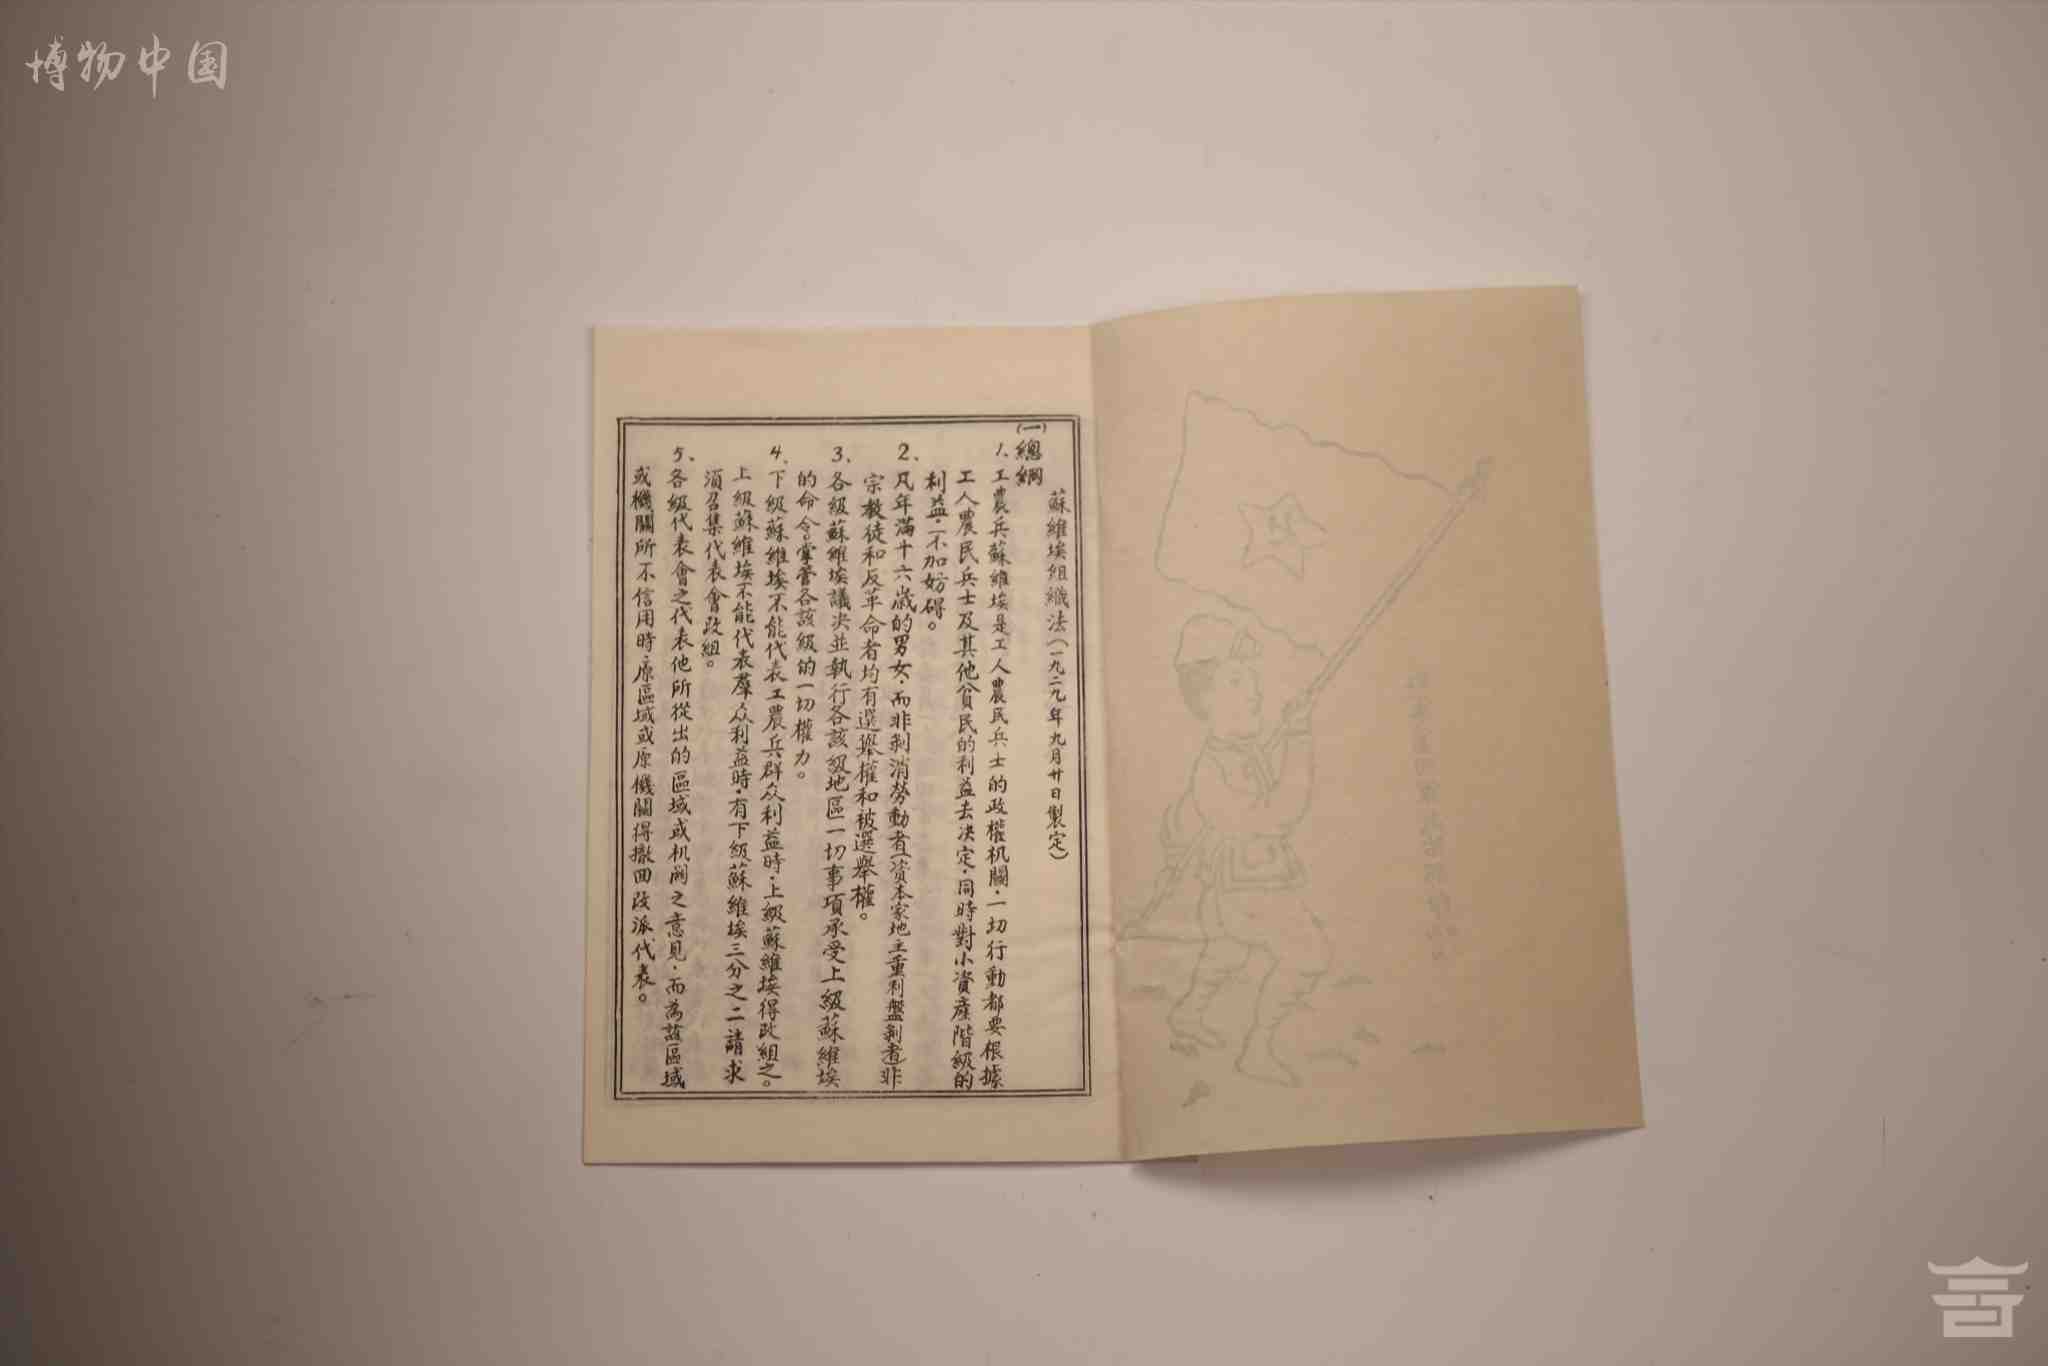 博物中国
蘇維埃組織法（一九二九年九月廿日製定）
(一)總綱
1、工農兵蘇維埃是工人農民兵士的政權机關·一切行動都要根據
工人農民兵士及其他貧民的利益去决定·同時對小資產階級的
利益·不加妨碍。
2、凡年滿十六歲的男女·而非剥消勞動者(資本家地主重利盤剥者)非
宗教徒和反革命者均有選舉權和被選舉權。
3、各級蘇維埃議决並執行各該級地區一切事項承受上級蘇維埃
的命令掌管各該級的一切權力。
4、下級蘇維埃不能代表工農兵群众利益時·上級蘇維埃得改組之。
上級蘇維埃不能代表羣众利益時·有下級蘇維埃三分之二請求
須召集代表會改組。
5、各級代表會之代表他所從出的區域或机關之意見·而為該區域
或機關所不信用時·原區域或原機關得撤回改派代表。